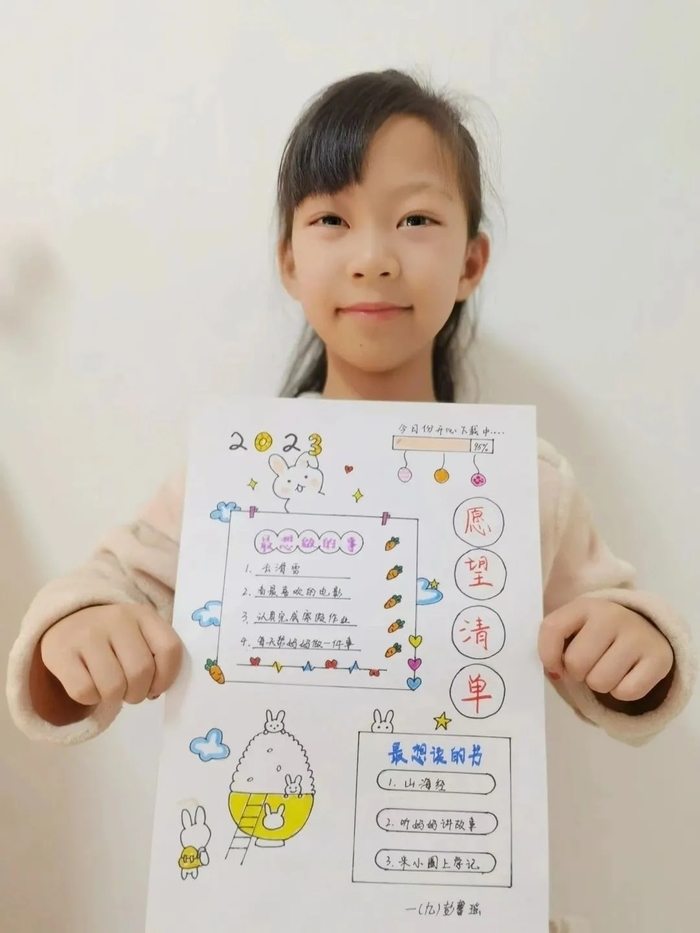 2023
今日份开心下载中....
95%
愿望清单
最想做的事
1. 去滑雪
2. 看最喜欢的电影
3. 认真完成寒假作业
4. 每天帮妈妈做一件事
最想读的书
1. 山海经
2. 听妈妈讲故事
3. 米小圈上学记
一(九)彭馨瑶